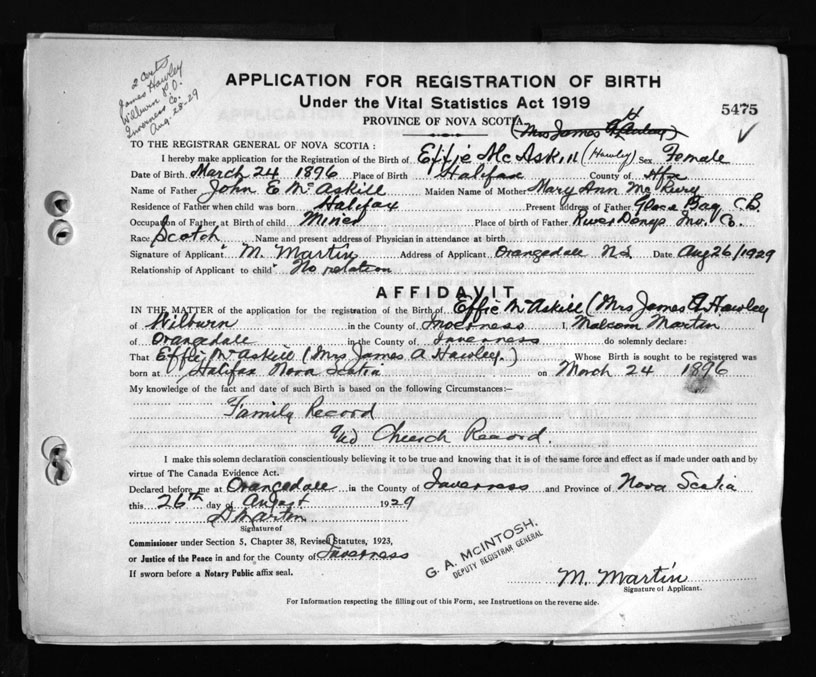 2 Certs
James Hawley
Wilburn P.O.
Inverness Co.
Aug-28-29
APPLICATION FOR REGISTRATION OF BIRTH
Under the Vital Statistics Act 1919
5475
PROVINCE OF NOVA SCOTIA
(Mrs James A Hawley)
TO THE REGISTRAR GENERAL OF NOVA SCOTIA:
I hereby make application for the Registration of the Birth of Effie McAskill (Hawley) Sex Female
Date of Birth March 24 1896 Place of Birth Halifax County of Hfx
Name of Father John E McAskill Maiden Name of Mother Mary Ann
Residence of Father when child was born Halifax Present address of Father Glace Bay C.B.
Occupation of Father at Birth of child Miner Place of birth of Father River Denys Inv. Co.
Race Scotch Name and present address of Physician in attendance at birth
Signature of Applicant M. Martin Address of Applicant Orangedale N.S. Date Aug 26/1929
Relationship of Applicant to child No relation
AFFIDAVIT
IN THE MATTER of the application for the registration of the Birth of Effie McAskill (Mrs James A Hawley
of Wilburn in the County of Inverness I, Malcom Martin
of Orangedale in the County of Inverness do solemnly declare:
That Effie McAskill (Mrs James A Hawley.) Whose Birth is sought to be registered was
born at Halifax Nova Scotia on March 24 1896
My knowledge of the fact and date of such Birth is based on the following Circumstances:—
Family Record
and Church Record.
I make this solemn declaration conscientiously believing it to be true and knowing that it is of the same force and effect as if made under oath and by
virtue of The Canada Evidence Act.
Declared before me at Orangedale in the County of Inverness and Province of Nova Scotia
this 26th day of August 1929
D Martin
Signature of
Commissioner under Section 5, Chapter 38, Revised Statutes, 1923,
or Justice of the Peace in and for the County of Inverness
If sworn before a Notary Public affix seal.
G. A. McINTOSH,
DEPUTY REGISTRAR GENERAL
M. Martin
Signature of Applicant.
For Information respecting the filling out of this Form, see Instructions on the reverse side.